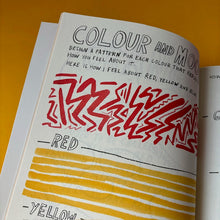 COLOUR AND MO
DESIGN A PATTERN FOR EACH COLOUR THAT
HOW YOU FEEL ABOUT IT.
HERE IS HOW I FEEL ABOUT RED, YELLOW AND
RED
YELLOW